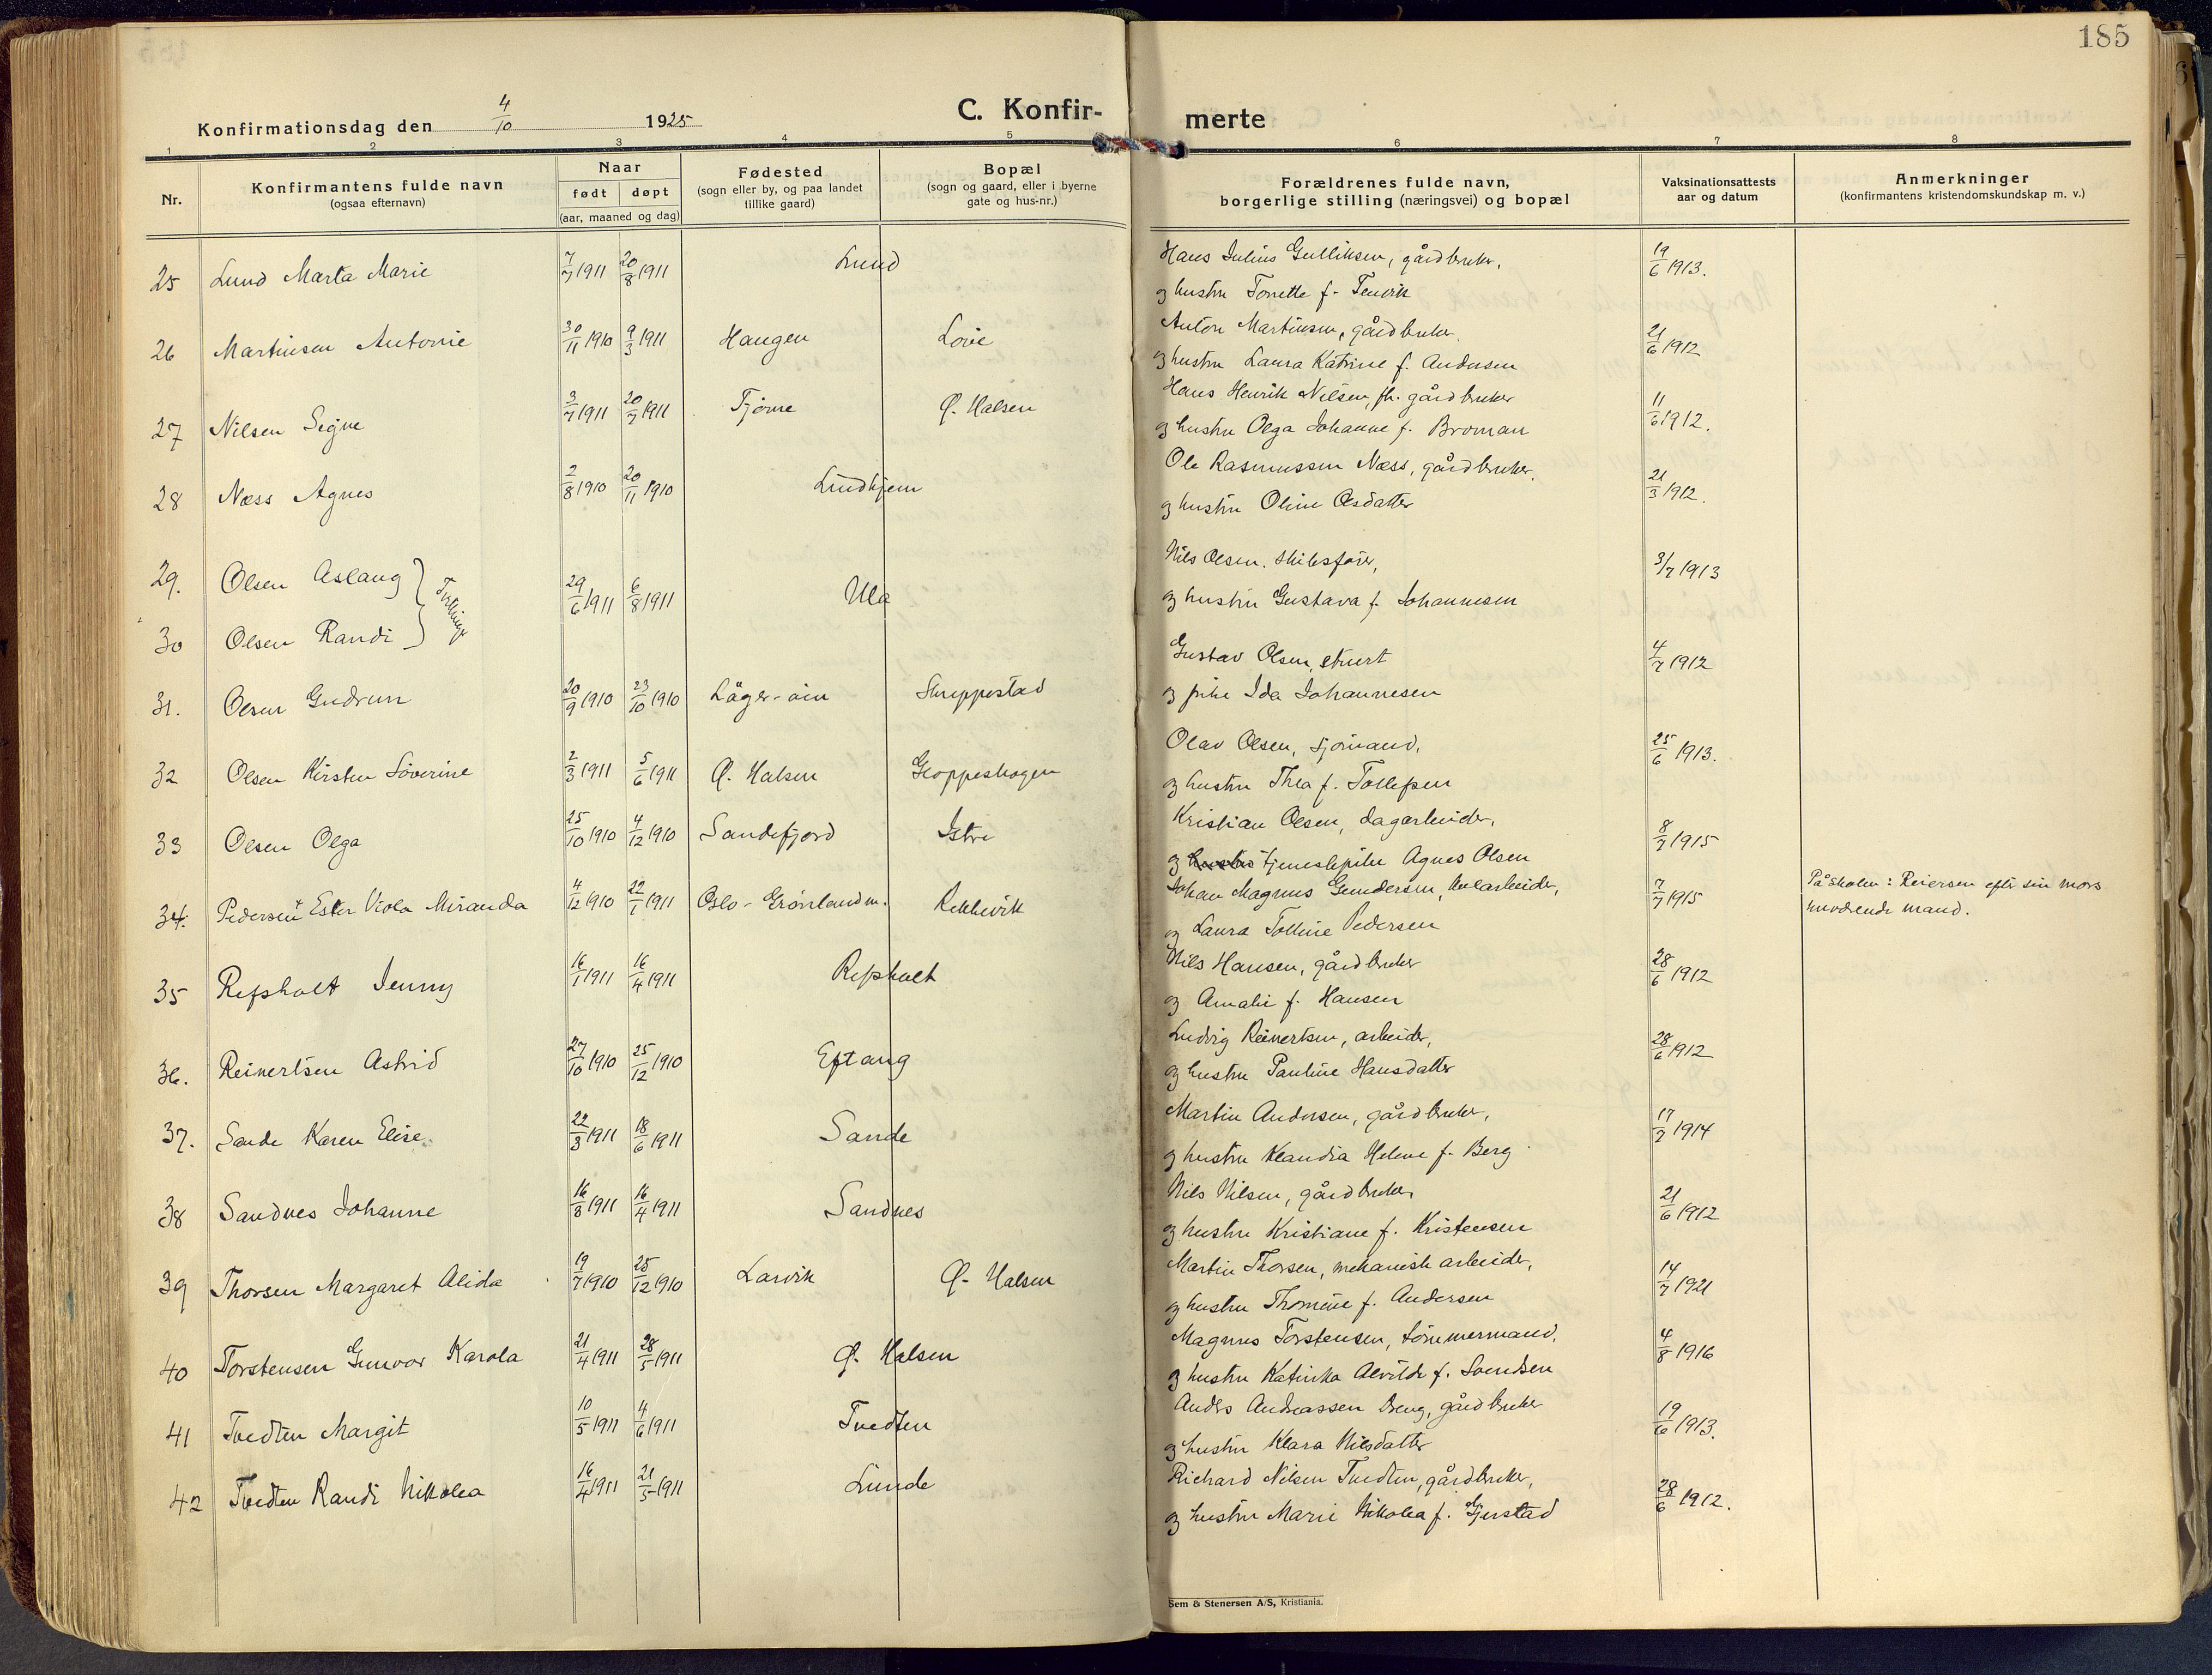 185
Konfirmationsdag den 4/10 1925
C. Konfir-
merte
1 2 3 4 5 6 7 8
Nr.
Konfirmantens fulde navn
(ogsaa efternavn)
Naar
født døpt
(aar, maaned og dag)
Fødested
(sogn eller by, og paa landet
tillike gaard)
Bopæl
(sogn og gaard, eller i byerne
gate og hus-nr.)
Forældrenes fulde navn,
borgerlige stilling (næringsvei) og bopæl
Vaksinationsattests
aar og datum
Anmerkninger
(konfirmantens kristendomskundskap m. v.)
25 Lund Marta Marie 7/7 1911 20/8 1911 Lund Hans Julius Gulliksen, gårdbruker, 19/6 1913.
og hustru Tonette f.
26 Martinsen Antonie 30/11 1910 9/3 1911 Haugen Løvie Anton Martinsen, gårdbruker. 21/6 1912
og hustru Laura Katrine f. Andersen
27 Nilsen Signe 3/7 1911 20/7 1911 Tjøme Ø. Halsen Hans Henrik Nilsen, fh. gårdbruker 11/6 1912.
og hustru Olga Johanne f. Broman
28 Næss Agnes 2/8 1910 20/11 1910 Lindhjem Ole Rasmussen Næss, gårdbruker, 21/3 1912.
og hustru Oline Olsdatter
29. Olsen Aslaug } Tvillinger 29/6 1911 6/8 1911 Ula Nils Olsen. skibsfører, 3/7 1913
og hustru Gustava f. Johannesen
30 Olsen Randi
31. Olsen Gudrun 20/9 1910 23/10 1910 Låger-øen Skreppestad Gustav Olsen, stuert 4/7 1912
og pike Ida Johannesen
32 Olsen Kirsten Søverine 2/3 1911 5/6 1911 Ø. Halsen Gloppeskogen Olav Olsen, sjømand, 25/6 1913.
og hustru Thea f. Tollefsen
33 Olsen Olga 25/10 1910 4/12 1910 Sandefjord Istre Kristian Olsen, dagarbeider, 8/7 1915
og hustru tjenestepike Agnes Olsen
34. Pedersen Ester Viola Miranda 4/12 1910 22/1 1911 Oslo - Grønland m. Rekkevik Johan Magnus Gundersen, 7/7 1915 På skolen: Reiersen efter sin mors
og Laura Tolline Pedersen nuværende mand.
35 Refsholt Jenny 16/1 1911 16/4 1911 Refsholt Nils Hansen, gårdbruker 28/6 1912
og Amalie f. Hansen
36. Reinertsen Astrid 27/10 1910 25/12 1910 Eftang Ludvig Reinertsen, arbeider, 28/6 1912
og hustru Pauline Hansdatter
37. Sande Karen Elise 22/3 1911 18/6 1911 Sande Martin Andersen, gårdbruker, 17/7 1914
og hustru Klaudia Helene f. Berg
38 Sandnes Johanne 16/3 1911 16/4 1911 Sandnes Nils Nilsen, gårdbruker 21/6 1912
og hustru Kristiane f. Kristensen
39 Thorsen Margaret Alida 19/7 1910 25/12 1910 Larvik Ø. Halsen Martin Thorsen, mekanisk arbeider, 14/7 1921
og hustru Thomine f. Andersen
40 Torstensen Gunvor Karola 21/4 1911 28/5 1911 Ø. Halsen Magnus Torstensen, tømmermand, 4/8 1916
og hustru Katinka Alvilde f. Svendsen
41 Tvedten Margit 10/5 1911 4/6 1911 Tvedten Anders Andreassen Breng, gårdbruker 19/6 1913.
og hustru Klara Nilsdatter
42 Tvedten Randi Nikolea 16/4 1911 21/5 1911 Lunde Richard Nilsen Tvedten, gårdbruker, 28/6 1912.
og hustru Marie Nikolea f. Gjerstad
Sem & Stenersen A/S, Kristiania.